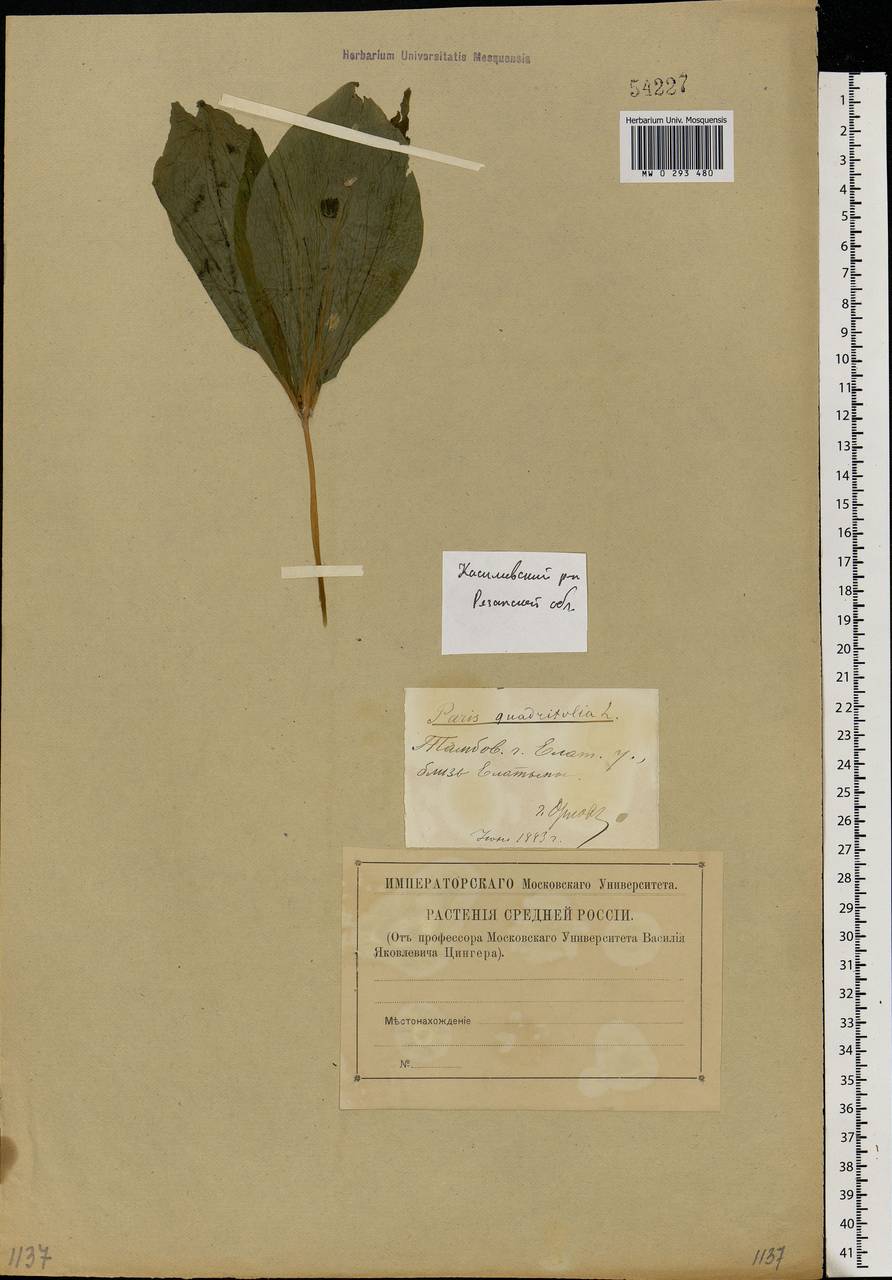 Herbarium Universitatis Mosquensis
54227
Herbarium Univ. Mosquensis
MW 0 293 480
Касимовский рн
Рязанской обл.
Paris quadrifolia L.
Тамбов. г. Елат. у.,
близь Елатьмы.
г. Орловъ
1883 г.
ИМПЕРАТОРСКАГО Московскаго Университета.
РАСТЕНІЯ СРЕДНЕЙ РОССІИ.
(Отъ профессора Московскаго Университета Василія
Яковлевича Цингера).
Мѣстонахожденіе
№.
1137
1137
1
2
3
4
5
6
7
8
9
10
11
12
13
14
15
16
17
18
19
20
21
22
23
24
25
26
27
28
29
30
31
32
33
34
35
36
37
38
39
40
41